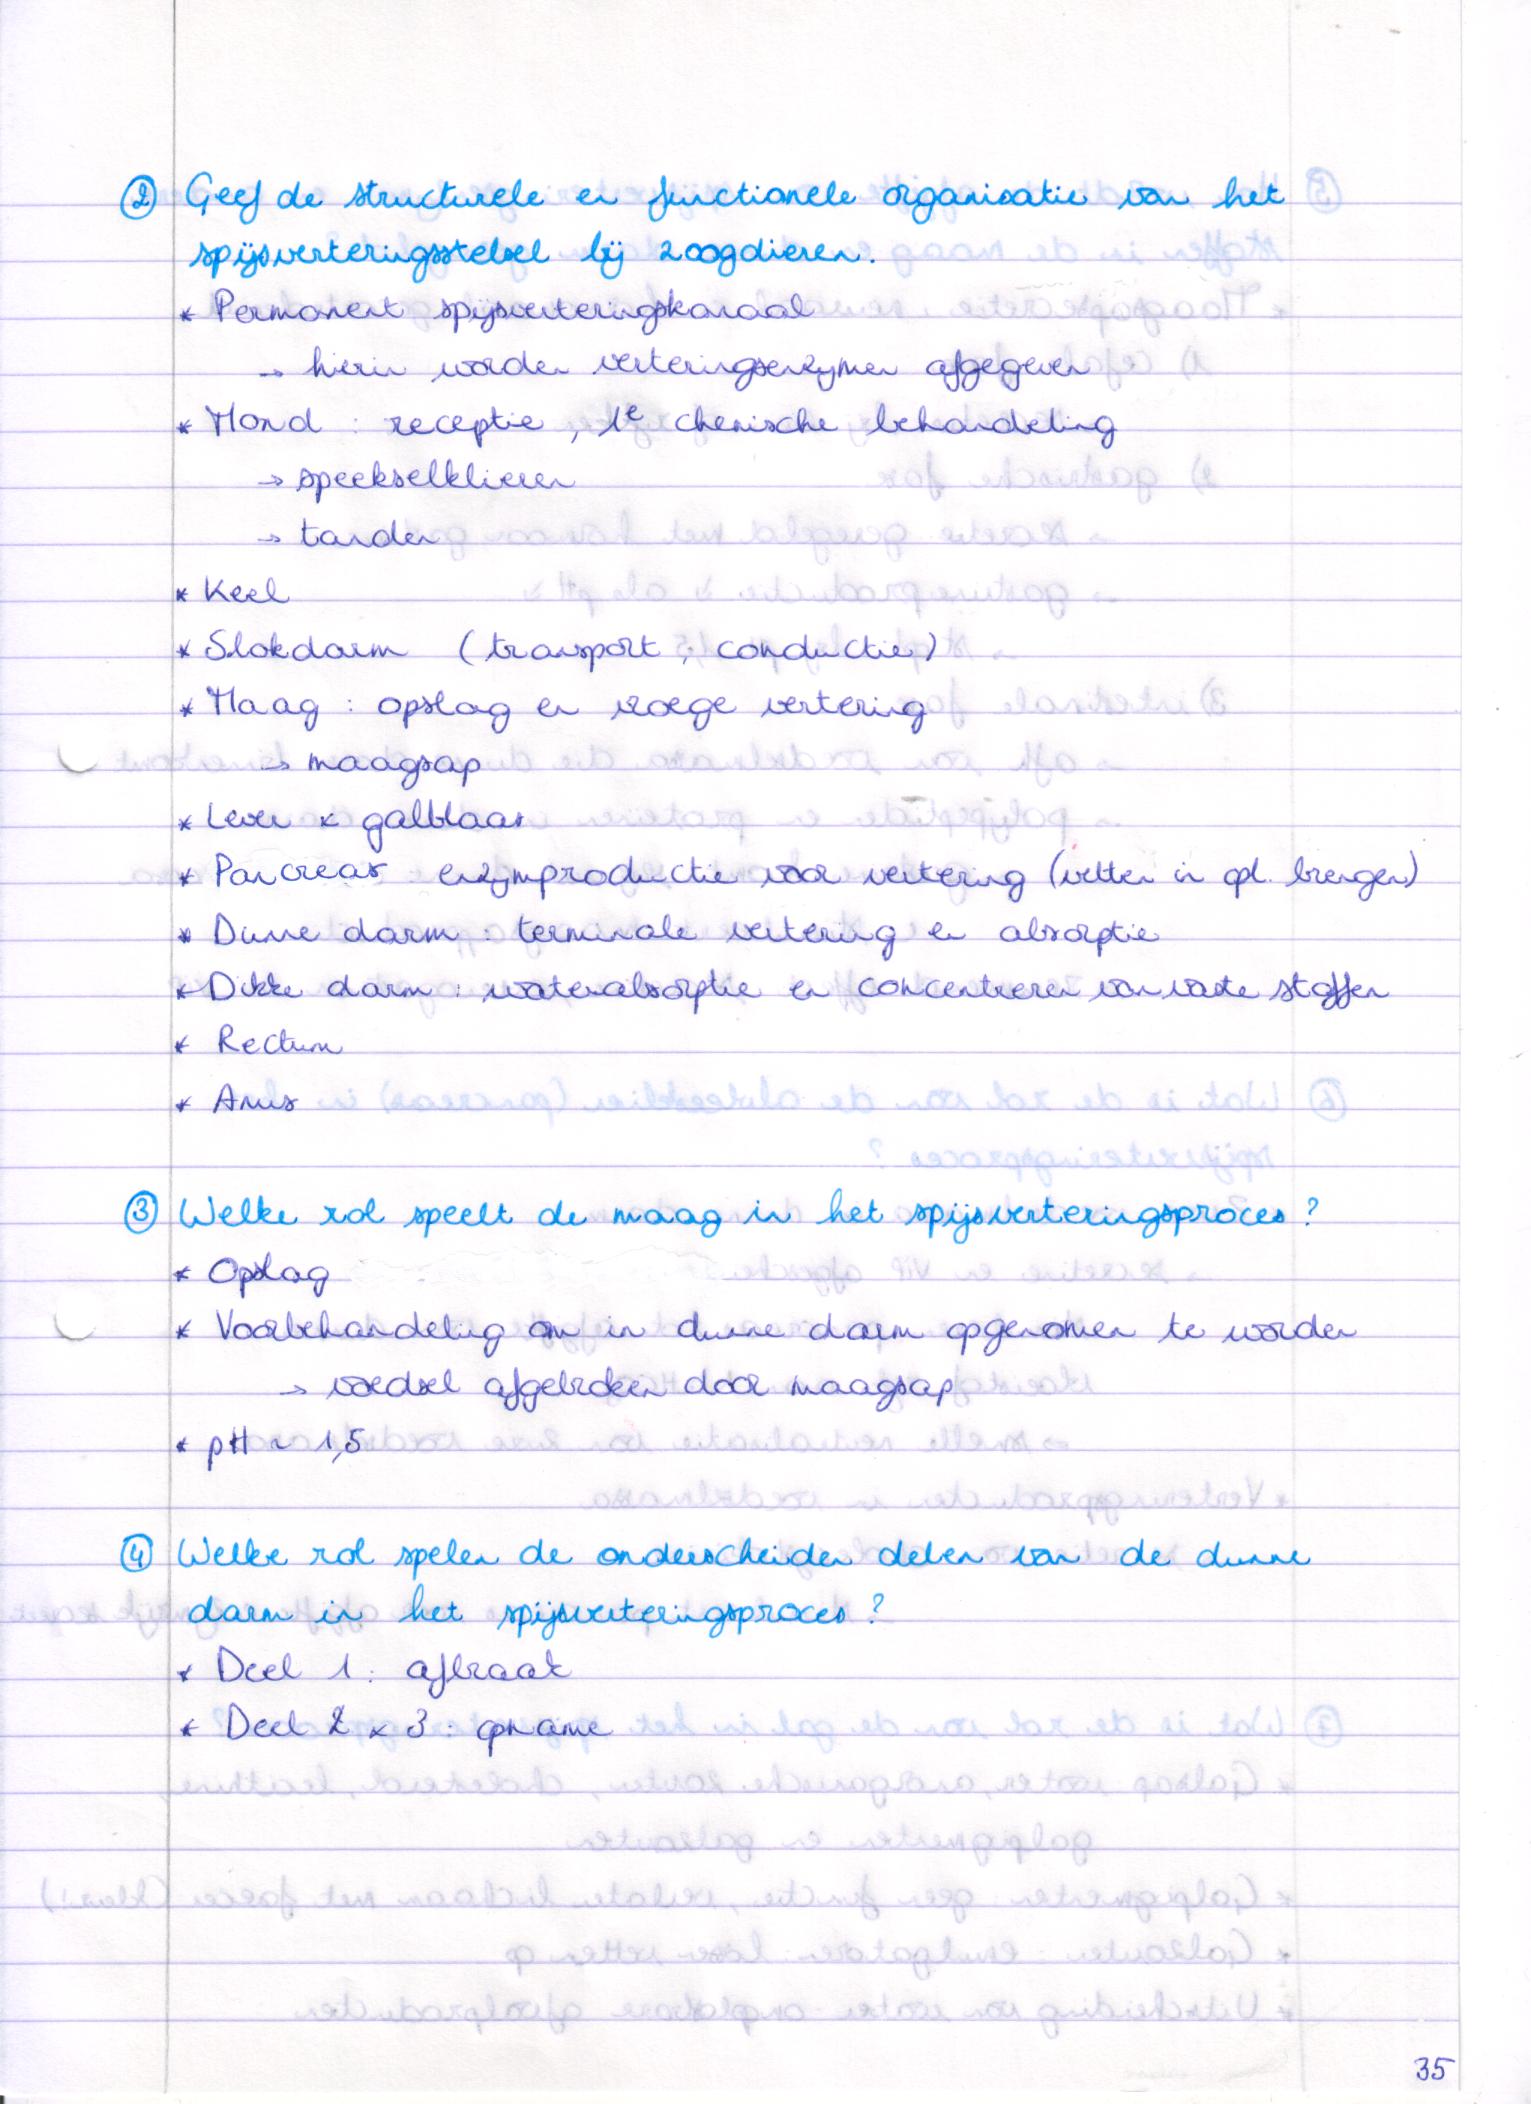 ② Geef de structurele en functionele organisatie van het
spijsverteringsstelsel bij zoogdieren.
* Permanent spijsverteringskanaal
→ hierin worden verteringsenzymen afgegeven
* Mond : receptie, 1e chemische behandeling
→ speekselklieren
→ tanden
* Keel
* Slokdarm (transport, conductie)
* Maag : opslag en vroege vertering
→ maagsap
* Lever × galblaas
* Pancreas : enzymproductie voor vertering (vetten in opl. brengen)
* Dunne darm : terminale vertering en absorptie
* Dikke darm : waterabsorptie en concentreren van vaste stoffen
* Rectum
* Anus
③ Welke rol speelt de maag in het spijsverteringsproces ?
* Opslag
* Voorbehandeling om in dunne darm opgenomen te worden
→ voedsel afgebroken door maagsap
* pH ~ 1,5
④ Welke rol spelen de onderscheiden delen van de dunne
darm in het spijsverteringsproces ?
* Deel 1 : afbraak
* Deel 2 × 3 : opname
35